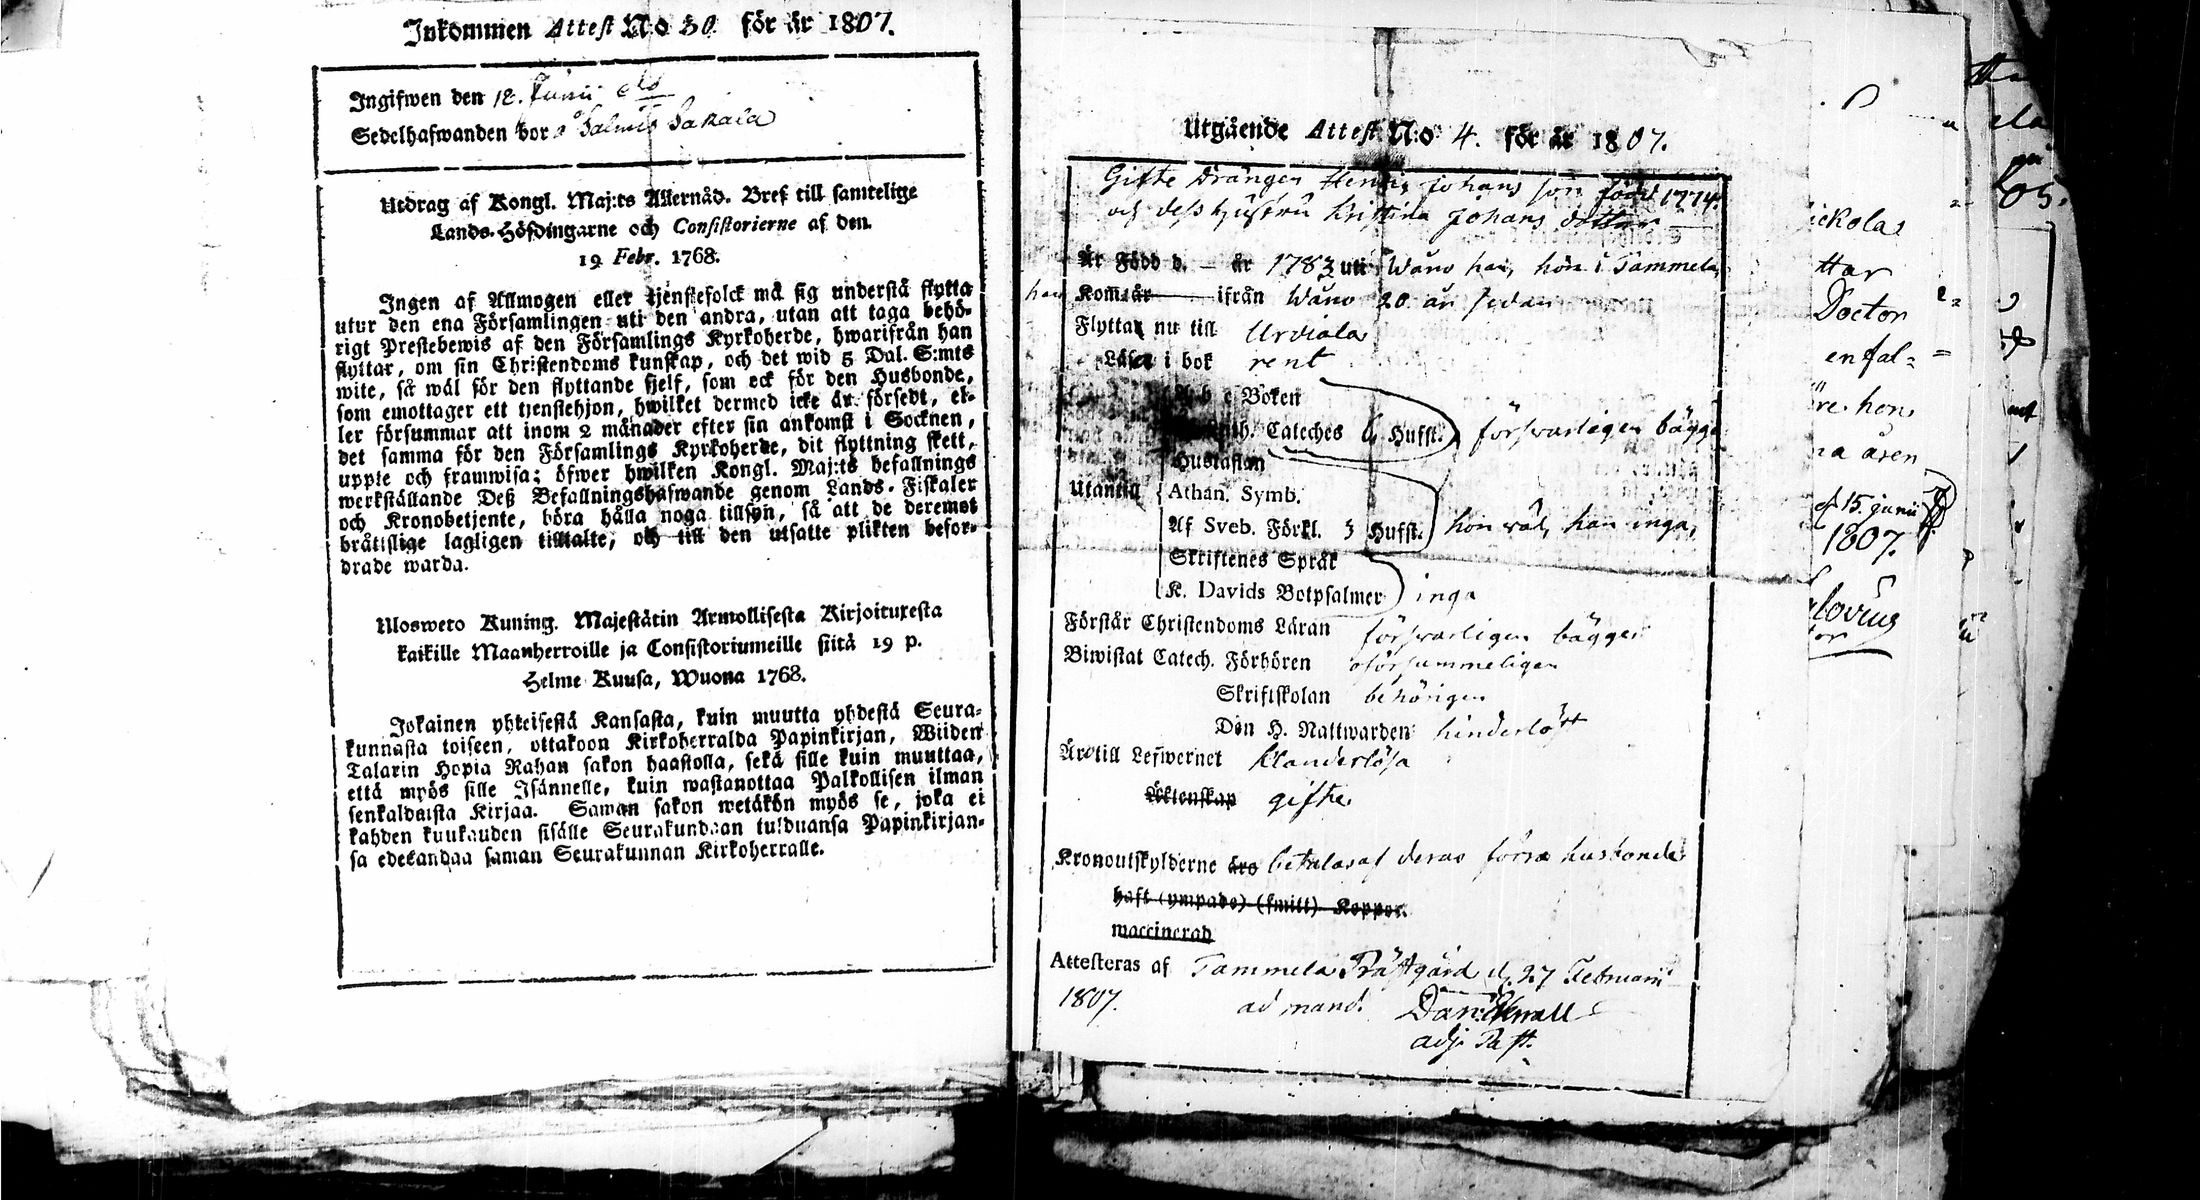 Inkommen Attest No 30. för år 1807.
Ingifwen den 12. Junii
Sedelhafwanden bor å Salmis Sakala
Utdrag af Kongl. Maj:ts Allernåd. Bref till samtelige
Lands-Höfdingarne och Consistorierne af den
19 Febr. 1768.
Ingen af Allmogen eller tjenstefolck må sig understå flytta
utur den ena Församlingen uti den andra, utan att taga behö-
rigt Prestebewis af den Församlings Kyrkoherde, hwarifrån han
flyttar, om sin Christendoms kunskap, och det wid 5 Dal. S:mts
wite, så wäl för den flyttande sjelf, som ock för den Husbonde,
som emottager ett tjenstehjon, hwilket dermed icke är försedt, el-
ler försummar att inom 2 månader efter sin ankomst i Socknen,
det samma för den Församlings Kyrkoherde, dit flyttning skett,
uppte och framwisa; öfwer hwilken Kongl. Maj:ts befallnings
werkställande Deß Befallningshafwande genom Lands-Fiskaler
och Kronobetjente, böra hålla noga tillsyn, så att de deremot
bråtislige lagligen tilltalte, och till den utsatte plikten befor-
drade warda.
Uloswero Kuning. Majestätin Armollisesta Kirjoituxesta
kaikille Maanherroille ja Consistoriumeille siitä 19 p.
Helme Kuusa, Wuona 1768.
Jokainen yhteisestä Kansasta, kuin muutta yhdestä Seura-
kunnasta toiseen, ottakoon Kirkoherralda Papinkirjan, Wiiden
Talarin Hopia Rahan sakon haastolla, sekä sille kuin muuttaa,
että myös sille Isännelle, kuin wastanottaa Palkollisen ilman
senkaldaista Kirjaa. Saman sakon wetäkön myös se, joka ei
kahden kuukauden sisälle Seurakundaan tulduansa Papinkirjan-
sa edesandaa saman Seurakunnan Kirkoherralle.
Utgående Attest N:o 4. för år 1807.
Gifte Drängen Henric Johans son född 1774.
och dess hustru Kristina Johans dotter
Är Född d. — år 1783 uti Wåno han, hon i Tammela
han Kom år ifrån Wåno 20 år sedan
Flyttar nu till Urdiala
Läser i bok rent
A b c Boken
Cateches 6 Hufst. förswarligen bägge
Hustaflan
Utantill Athan. Symb.
Af Sveb. Förkl. 3 Hufst. hon wäl, han inga,
Skriftenes Språk
K. Davids Botpsalmer inga
Förstår Christendoms Läran förswarligen bägge
Biwistat Catech. Förhören oförsummeligen
Skriftskolan behörigen
Den H. Nattwarden hinderlöst
Äro till Lefwernet klanderlösa
Äktenskap gifte
Kronoutskylderne äro betalas af deras förra husbonde
haft (ympade) (smitt) Koppor.
waccinerad
Attesteras af Tammela Prästgård d. 27 Februarii
1807. ad mand. Dan: Ekwall
adj: Past.
ickolas
ttar
Doctor
enfal=
re hon
na åren
d. 15. junii
1807.
05.